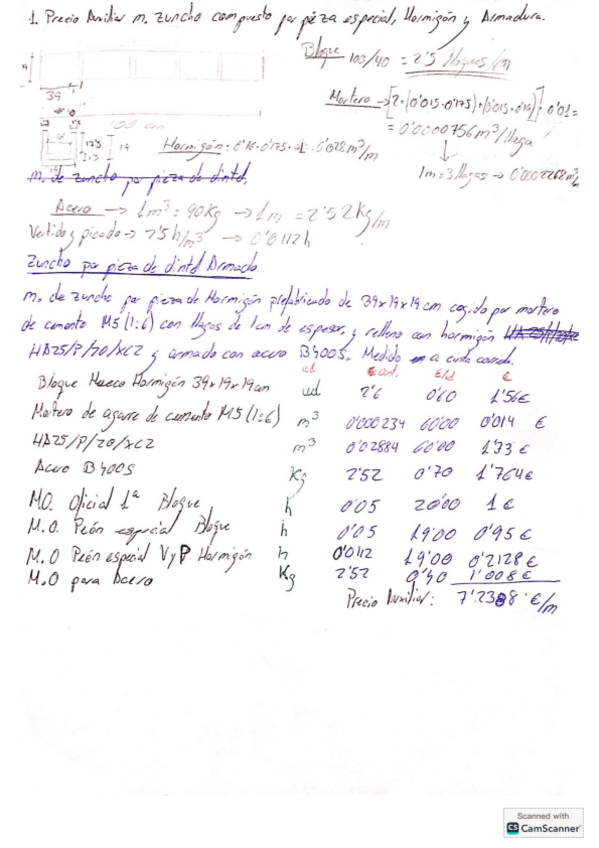 1. Precio Auxiliar m. zuncho compuesto por pieza especial, Hormigón y Armadura.
Bloque 100/40 = 2'5 bloques/m
39
Mortero → [2·(0'015·0'175)+(0'015·0'19)]·0'01 =
= 0'0000756 m³/llaga
1m = 3 llagas → 0'0002268 m³/m
100 cm
19
Hormigón · 0'16·0'175·1·0'028 m³/m
m. de zuncho por pieza de dintel.
Acero → 1m³ = 90Kg → 1m = 2'52Kg/m
Vertido y picado → 2'5h/m³ → 0'0112h
Zuncho por pieza de dintel Armado.
m. de zuncho por pieza de Hormigón prefabricado de 39x19x19cm cogido por mortero
de cemento M5 (1:6) con llagas de 1cm de espesor, y relleno con hormigón
HA25/P/20/XC2 y armado con acero B400S. Medido a cinta corrida.
ud cant. €/ud €
Bloque Hueco Hormigón 39x19x19cm ud 2'6 0'60 1'56€
Mortero de agarre de cemento M5 (1:6) m³ 0'000234 60'00 0'014 €
HA25/P/20/XC2 m³ 0'02884 60'00 1'73 €
Acero B400S Kg 2'52 0'70 1'764€
MO. Oficial 1ª Bloque h 0'05 20'00 1 €
M.O. Peón especial Bloque h 0'05 19'00 0'95€
M.O Peón especial V y P Hormigón h 0'0112 19'00 0'2128€
M.O para Acero Kg 2'52 0'40 1'008€
Precio Auxiliar: 7'2388 €/m
Scanned with
CS CamScanner